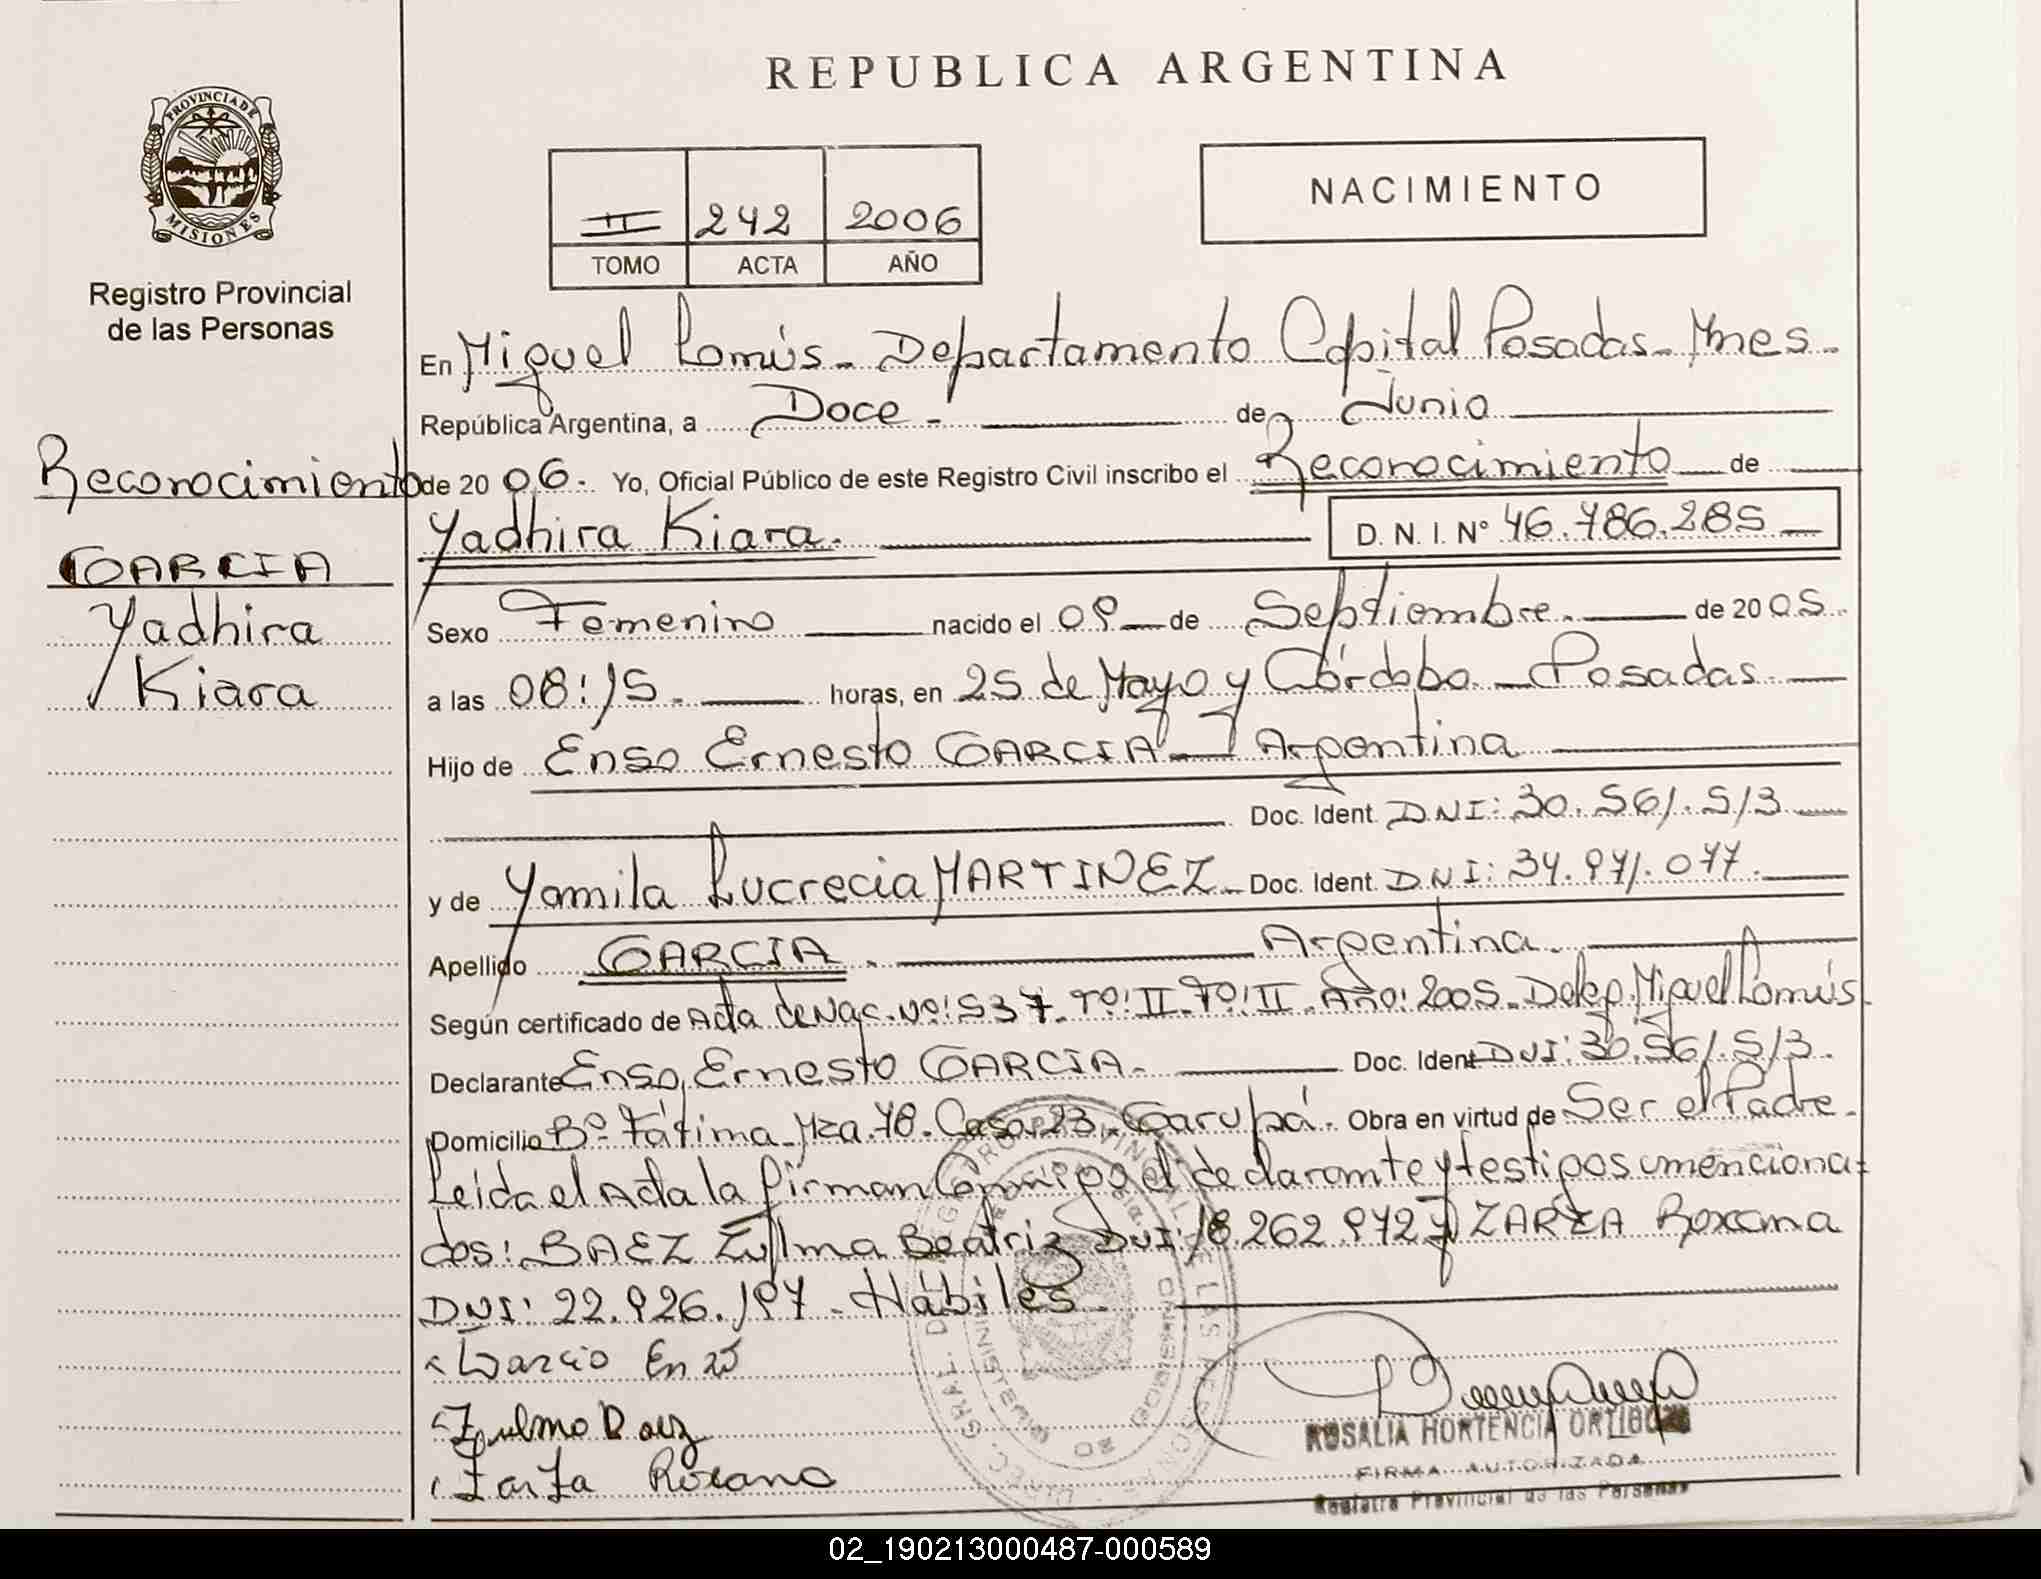 REPUBLICA ARGENTINA
PROVINCIA DE
MISIONES
Registro Provincial
de las Personas
II 242 2006
TOMO ACTA AÑO
NACIMIENTO
En Miguel Lanús - Departamento Capital Posadas - Mnes -
República Argentina, a Doce - de Junio
Reconocimiento
GARCIA
Yadhira
Kiara
de 2006. Yo, Oficial Público de este Registro Civil inscribo el Reconocimiento de
Yadhira Kiara. D. N. I. Nº 46.786.285
Sexo Femenino nacido el 09 de Septiembre. de 2005
a las 08:15. horas, en 25 de Mayo y Córdoba - Posadas
Hijo de Enso Ernesto GARCIA - Argentina
Doc. Ident. DNI: 30.561.513
y de Yamila Lucrecia MARTINEZ - Doc. Ident. DNI: 34.971.077.
Apellido GARCIA. Argentina.
Según certificado de Acta de Nac. Nº: 537. Tº: II. Fº: II. Año: 2005 - Deleg. Miguel Lanús
Declarante Enso Ernesto GARCIA. Doc. Ident DNI: 30.561.513.
Domicilio Bº Fátima - Mza. 78. Casa 23. Garupá. Obra en virtud de Ser el Padre.
Leida el Acta la firman Conmigo el declarante y testigos menciona-
dos: BAEZ Zulma Beatriz DNI: 18.262.972 y ZARZA Roxana
DNI: 22.926.197 - Hábiles.
Zulma Baez
Zarza Roxana
ROSALIA HORTENCIA
FIRMA AUTORIZADA
Registro Provincial de las Personas
02_190213000487-000589